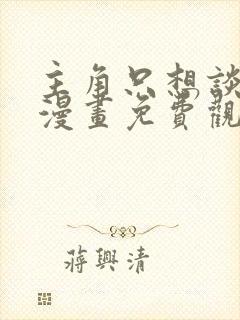 主角只想談
漫畫免費觀
蔣興清